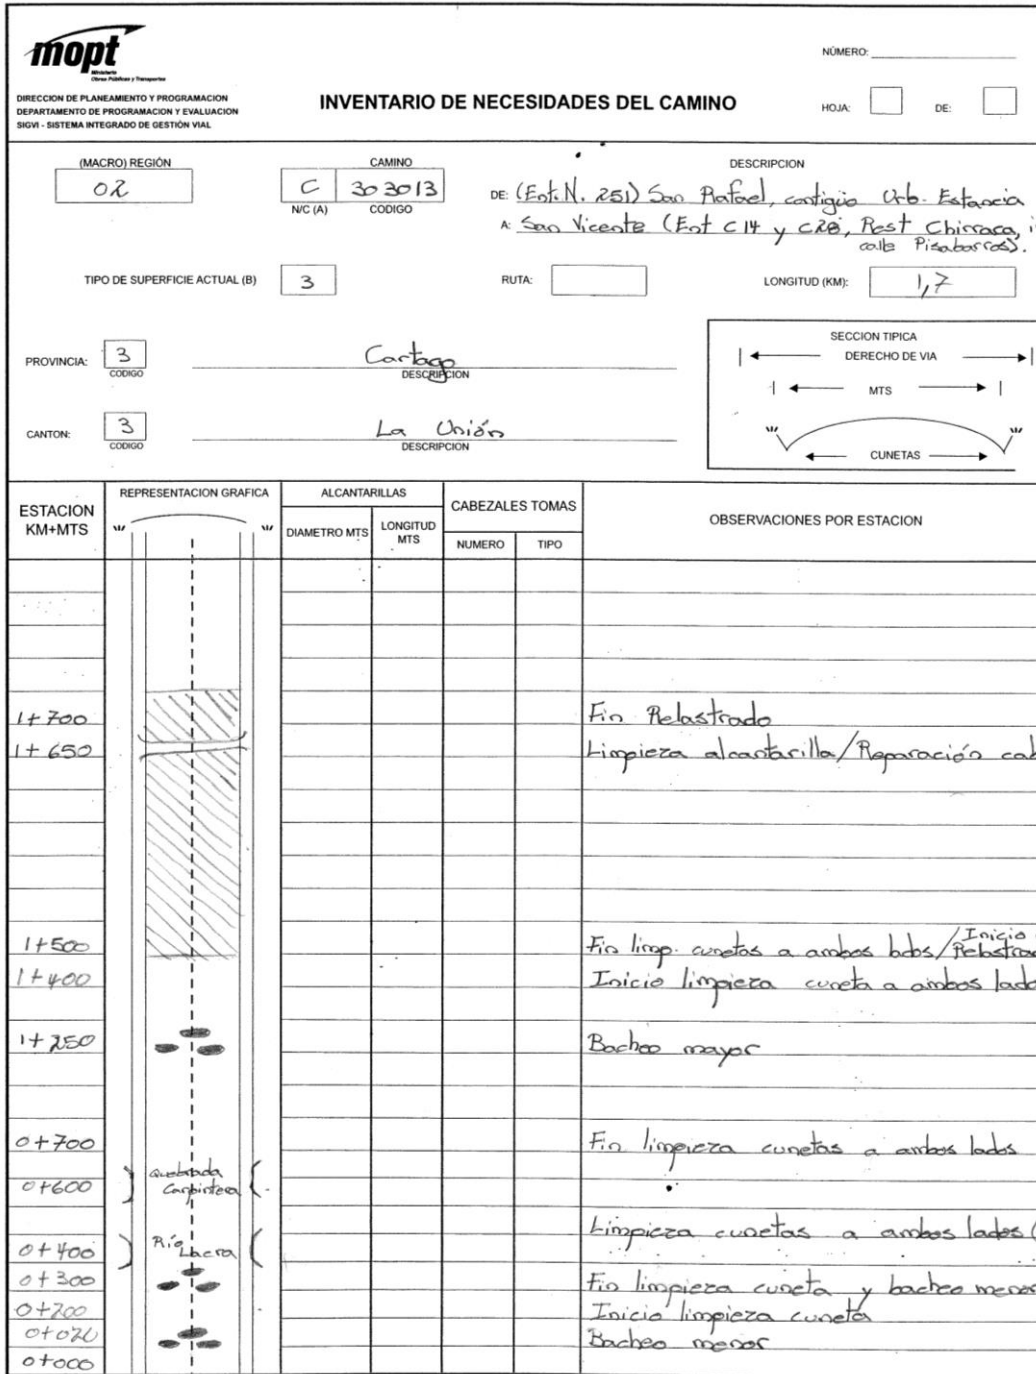 mopt
Ministerio
Obras Públicas y Transportes
DIRECCION DE PLANEAMIENTO Y PROGRAMACION
DEPARTAMENTO DE PROGRAMACION Y EVALUACION
SIGVI - SISTEMA INTEGRADO DE GESTIÓN VIAL
INVENTARIO DE NECESIDADES DEL CAMINO
NÚMERO:
HOJA: DE:
(MACRO) REGIÓN CAMINO DESCRIPCION
02 C 303013 DE: (Ent. N. 251) San Rafael, contiguo Urb. Estancia
N/C (A) CODIGO
A: San Vicente (Ent C14 y C28, Rest Chirraca,
calle Pisabarros).
TIPO DE SUPERFICIE ACTUAL (B) 3 RUTA: LONGITUD (KM): 1,7
SECCION TIPICA
DERECHO DE VIA
MTS
CUNETAS
PROVINCIA: 3 Cartago
CODIGO DESCRIPCION
CANTON: 3 La Unión
CODIGO DESCRIPCION
ESTACION KM+MTS REPRESENTACION GRAFICA ALCANTARILLAS CABEZALES TOMAS OBSERVACIONES POR ESTACION
DIAMETRO MTS LONGITUD MTS NUMERO TIPO
1+700 Fin Relastrado
1+650 Limpieza alcantarilla/Reparación cab
1+500 Fin limp. cunetas a ambos lados/Inicio Relastrad
1+400 Inicio limpieza cuneta a ambos lado
1+250 Bacheo mayor
0+700 Fin limpieza cunetas a ambos lados
0+600 Quebrada Carpintera
Limpieza cunetas a ambos lados (
0+400 Río
0+300 Fin limpieza cuneta y bacheo menor
0+200 Inicio limpieza cuneta
0+020 Bacheo menor
0+000